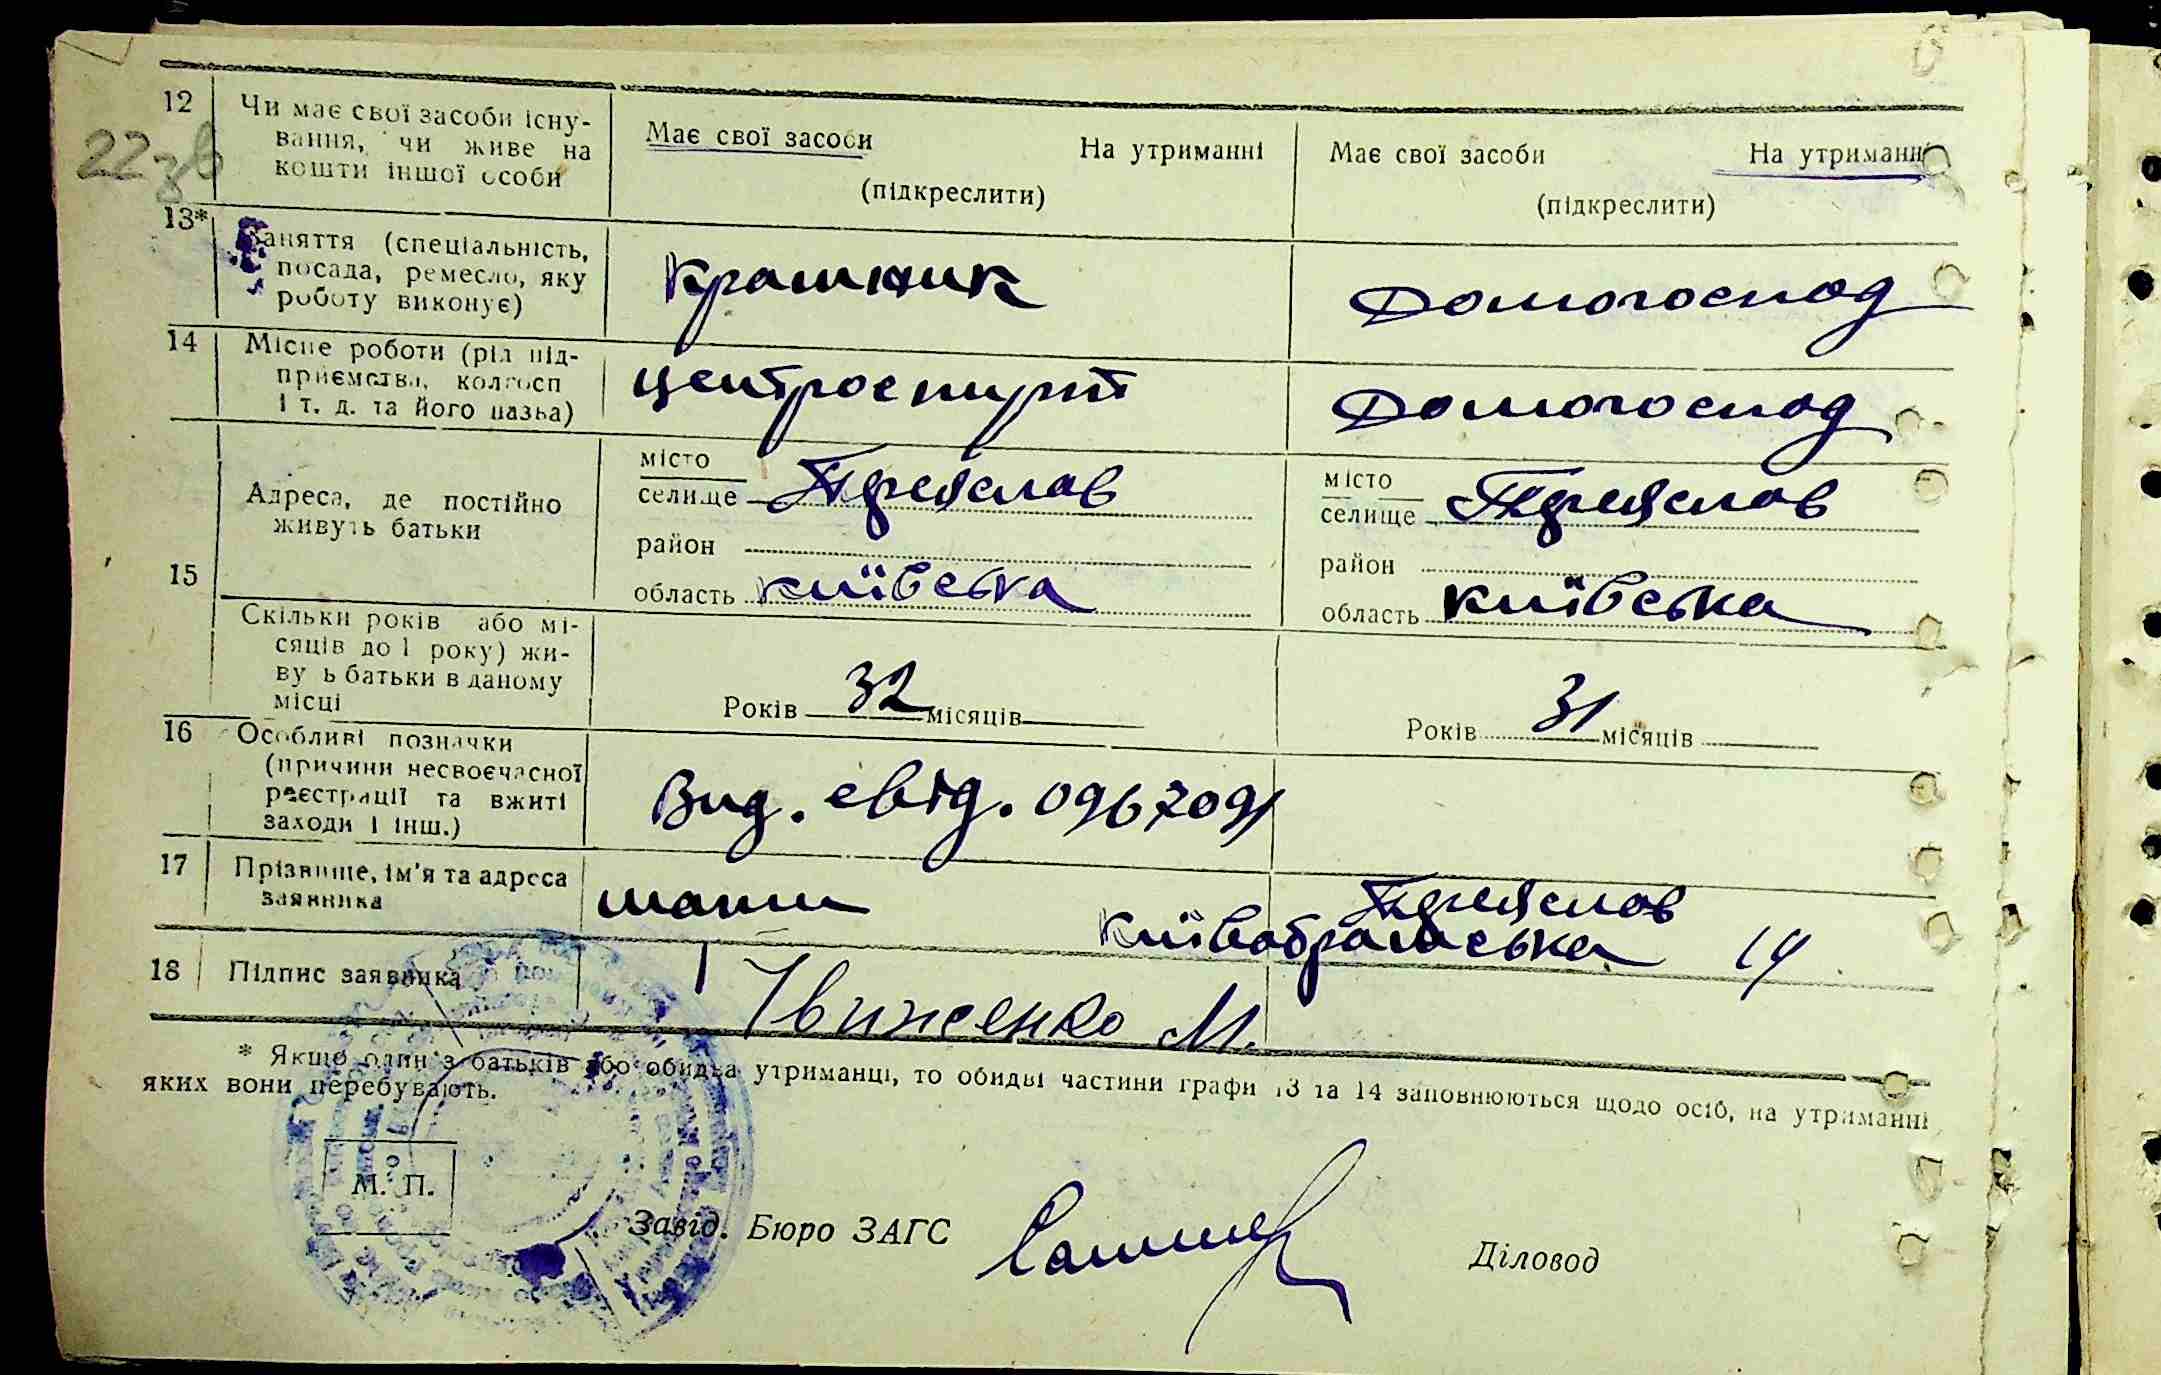 12 Чи має свої засоби існу-
вання, чи живе на
кошти іншої особи
Має свої засоби На утриманні
(підкреслити)
Має свої засоби На утриманні
(підкреслити)
22зв
13* Заняття (спеціальність,
посада, ремесло, яку
роботу виконує)
Крашник
Домогоспод
14 Місце роботи (рід під-
приємства, колгосп
і т. д. та його назва)
Центроспирт
Домогоспод
15 Адреса, де постійно
живуть батьки
місто
селище Переяслав
район
область Київська
місто
селище Переяслав
район
область Київська
Скільки років або мі-
сяців до 1 року) жи-
ву ь батьки в даному
місці
Років 32 місяців
Років 31 місяців
16 Особливі позначки
(причини несвоєчасної
реєстрації та вжиті
заходи і інш.)
Вид. свід. 0967091
17 Прізвище, ім'я та адреса
заявника
мати
Переяслав
14
18 Підпис заявника
М.
* Якщо один з батьків або обидва утриманці, то обидві частини графи 13 та 14 заповнюються щодо осіб, на утриманні
яких вони перебувають.
М. П.
Завід. Бюро ЗАГС
Діловод